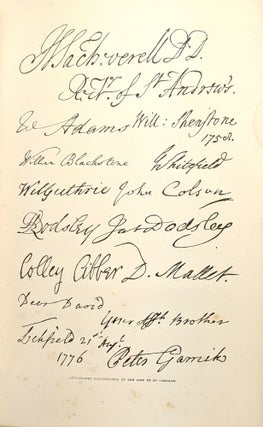 H Sacheverell D.D.
Rctr. of St Andrew's.
W Adams Will: Shenstone
1758.
William Blackstone GWhitefield
Wil Guthrie John Colson
RDodsley Jas Dodsley
Colley Cibber D. Mallet.
Dear David
Your Afft. Brother
Lichfield 21st Augt.
1776 Peter Garrick